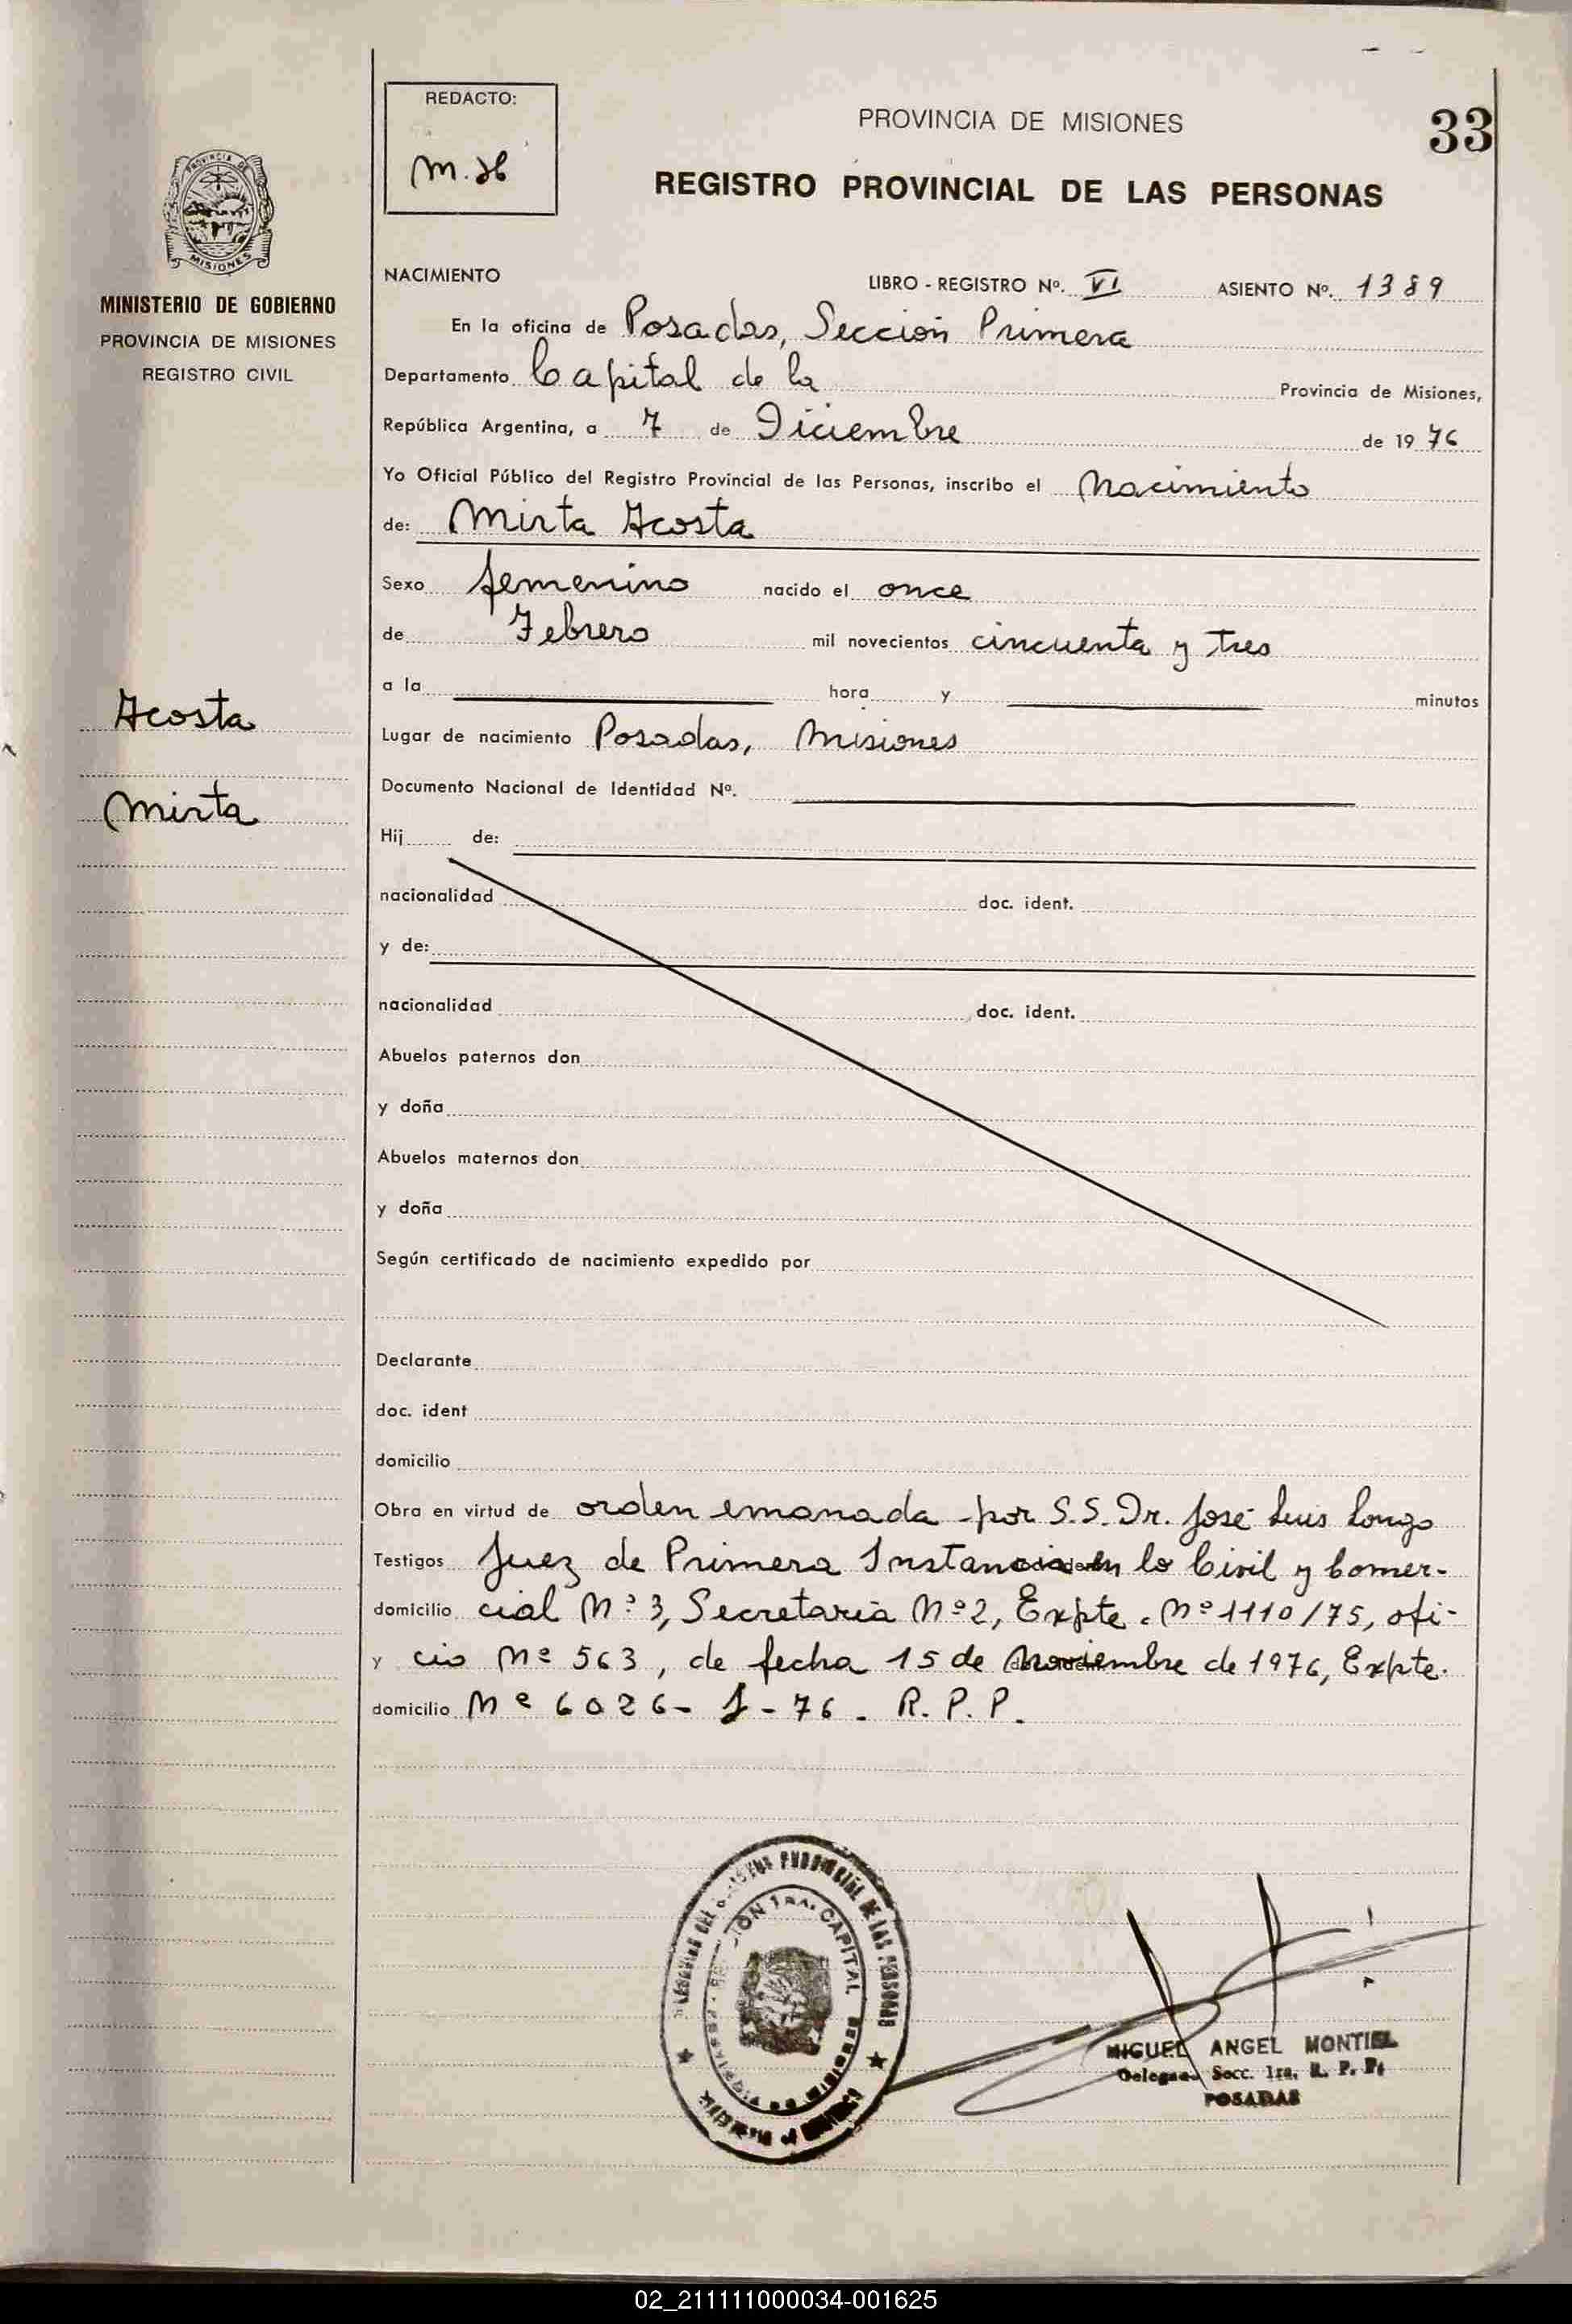 REDACTO:
PROVINCIA DE MISIONES
33
REGISTRO PROVINCIAL DE LAS PERSONAS
PROVINCIA DE
MISIONES
MINISTERIO DE GOBIERNO
PROVINCIA DE MISIONES
REGISTRO CIVIL
NACIMIENTO LIBRO - REGISTRO Nº. VI ASIENTO Nº. 1389
En la oficina de Posadas, Sección Primera
Departamento Capital de la Provincia de Misiones,
República Argentina, a 7 de Diciembre de 1976
Yo Oficial Público del Registro Provincial de las Personas, inscribo el Nacimiento
de: Mirta Acosta
Sexo femenino nacido el once
de Febrero mil novecientos cincuenta y tres
a la hora y minutos
Acosta
Lugar de nacimiento Posadas, Misiones
Documento Nacional de Identidad Nº.
Mirta
Hij de:
nacionalidad doc. ident.
y de:
nacionalidad doc. ident.
Abuelos paternos don
y doña
Abuelos maternos don
y doña
Según certificado de nacimiento expedido por
Declarante
doc. ident
domicilio
Obra en virtud de orden emanada por S.S. Dr. José Luis Longo
Testigos Juez de Primera Instancia en lo Civil y Comer-
domicilio cial Nº 3, Secretaria Nº 2, Expte. Nº 1110/75, ofi-
y cio Nº 563, de fecha 15 de Noviembre de 1976, Expte.
domicilio Nº 6026- J -76. R. P. P.
PROVINCIAL DE LAS PERSONAS
1ra. CAPITAL
MIGUEL ANGEL MONTIEL
Secc. 1ra. R. P. P.
POSADAS
02_211111000034-001625